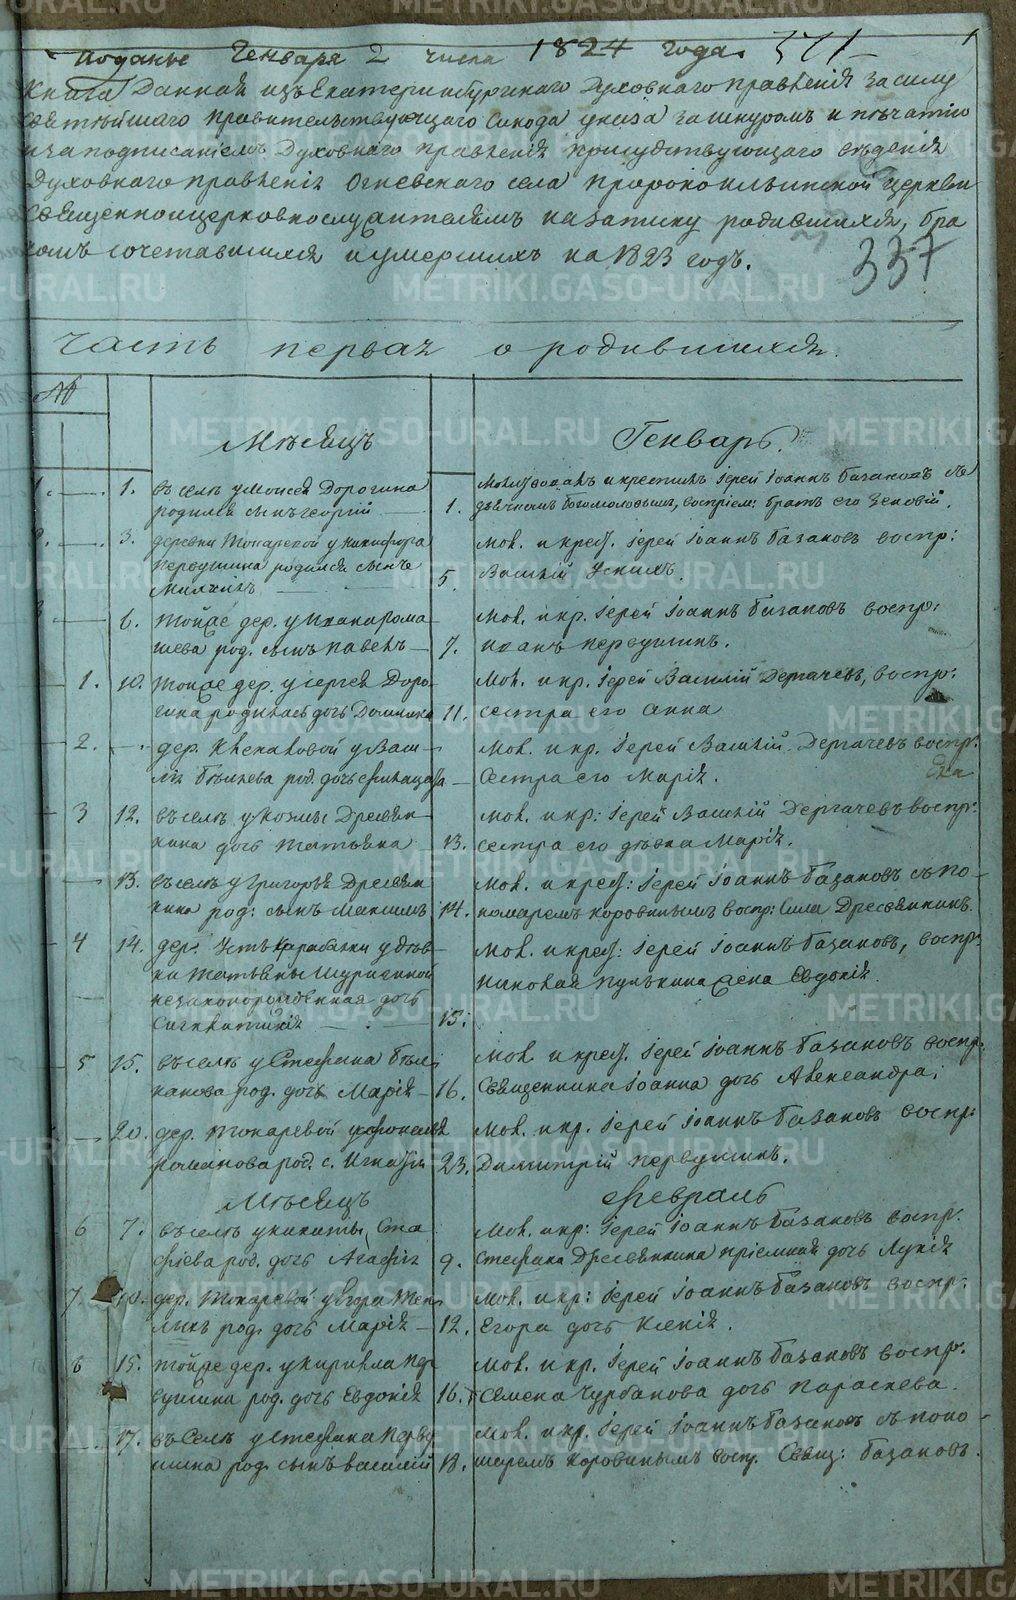 Поданье Генваря 2 числа 1824 года. 371
1
Книга Данная изъ Екатеринбургскаго Духовнаго правленія за силу
святѣйшаго правительствующаго Синода указа за шнуромъ и печатію
и за подписаніемъ Духовнаго правленія присудствующаго вѣденія
Духовнаго правленія Огневскаго села пророкоильинской церкви
священноицерковнослужителямъ на записку родившихся, бра
комъ сочетавшихся и умершихъ на 1823 годъ.
337
Часть первая о родившихся.
№
Мѣсяцъ Генварь.
1. 1. въ селѣ у Моисея Дорогина
родился сынъ георгій
1. Молитвовалъ и крестилъ Іерей Іоаннъ Базановъ съ
дьячкомъ Богомоловымъ, воспріем: братъ его Зеновій.
2. 3. деревни Токаревой у Никифора
Первушина родился сынъ
Михаилъ
5. Мол. и крест. Іерей Іоаннъ Базановъ воспр:
Василій Ускихъ.
3 6. тойже дер. у Ивана Рома
шева род. сынъ Павелъ
7. Мол. и кр. Іерей Іоаннъ Базановъ воспр:
Иванъ Первушинъ.
1. 10. тойже дер. у Сергея Доро-
гина родилась дочь Домника
11. Мол. и кр. Іерей Василій Дергачевъ, воспр:
сестра его Анна
2. дер. у Васи-
лія Бѣлкева род. дочь
Мол. и кр. Іерей Василій Дергачевъ воспр:
Сестра его Марія.
3 12. въ селѣ у Козмы Дресвян-
кина дочь Татьяна
13. Мол. и кр: Іерей Василій Дергачевъ воспр:
сестра его дѣвка Марія.
13. въ селѣ у Григорья Дресвян
кина род: сынъ Максимъ
14. Мол. и крест: Іерей Іоаннъ Базановъ съ по-
номаремъ Коровинымъ воспр: Сила Дресвянкинъ.
4 14. дер: Усть Карабалки у дѣв
ки Татьяны
незаконорожденная дочь
Синклитикія
15. Мол. и крест: Іерей Іоаннъ Базановъ, воспр:
Николая Пупкина жена Евдокія
5 15. въ селѣ у Стефана Бѣл
канова род. дочь Марія
16. Мол. и крест. Іерей Іоаннъ Базановъ воспр.
Священника Іоанна дочь Александра;
20. дер. Токаревой у Афонасья
Романова род. с. Игнатій
23. Мол. и кр. Іерей Іоаннъ Базановъ воспр:
Димитрій Первушинъ.
Мѣсяцъ Февраль
6 7. въ селѣ у Никиты Ста
фіева род. дочь Агафія
9. Мол. и кр: Іерей Іоаннъ Базановъ воспр.
Стефана Дресвянкина пріемная дочь Лукія
7 10. дер. Токаревой у Егора
род. дочь Марія
12. Мол. и кр: Іерей Іоаннъ Базановъ воспр.
Егора дочь Ксенія.
8 15. тойже дер. у Кирилла Пер
вушина род. дочь Евдокія
16. Мол. и кр. Іерей Іоаннъ Базановъ воспр.
Семена Чурбанова дочь Параскева.
17. въ Селѣ у Стефана Перву
шина род. сынъ Василій
18. Мол. и кр. Іерей Іоаннъ Базановъ съ поно-
маремъ Коровинымъ воспр. Свящ: Базановъ.
METRIKI.GASO-URAL.RU